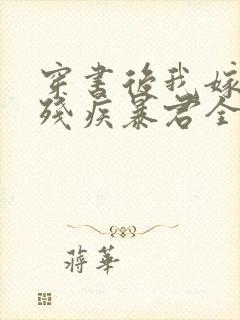 穿書後我嫁
殘疾暴君全
蔣華